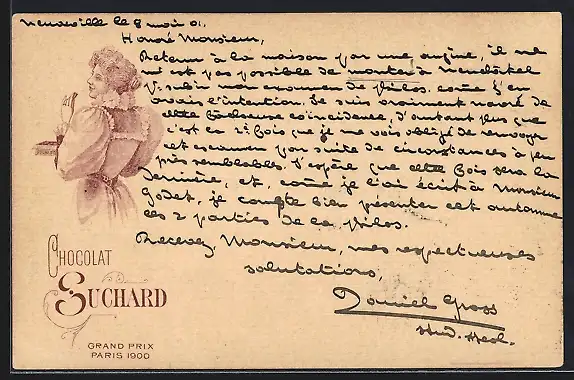 Neuveville le 8 mai 01.
Honoré Monsieur,
Retenu à la maison par une angine, il ne
m'est pas possible de monter à Neuchâtel
p. subir mon examen de philos. come j'en
avais l'intention. Je suis vraiment navré de
cette fâcheuse coïncidence, d'autant plus que
c'est la 2e fois que je me vois obligé de renvoyer
cet examen par suite de circonstances à peu
près semblables. J'espère que cette fois sera la
dernière, et, come je l'ai écrit à Monsieur
Godet, je compte bien présenter cet automne
les 2 parties de la philos.
Recevez, Monsieur, mes respectueuses
salutations,
Daniel Gross
CHOCOLAT
SUCHARD
GRAND PRIX
PARIS 1900